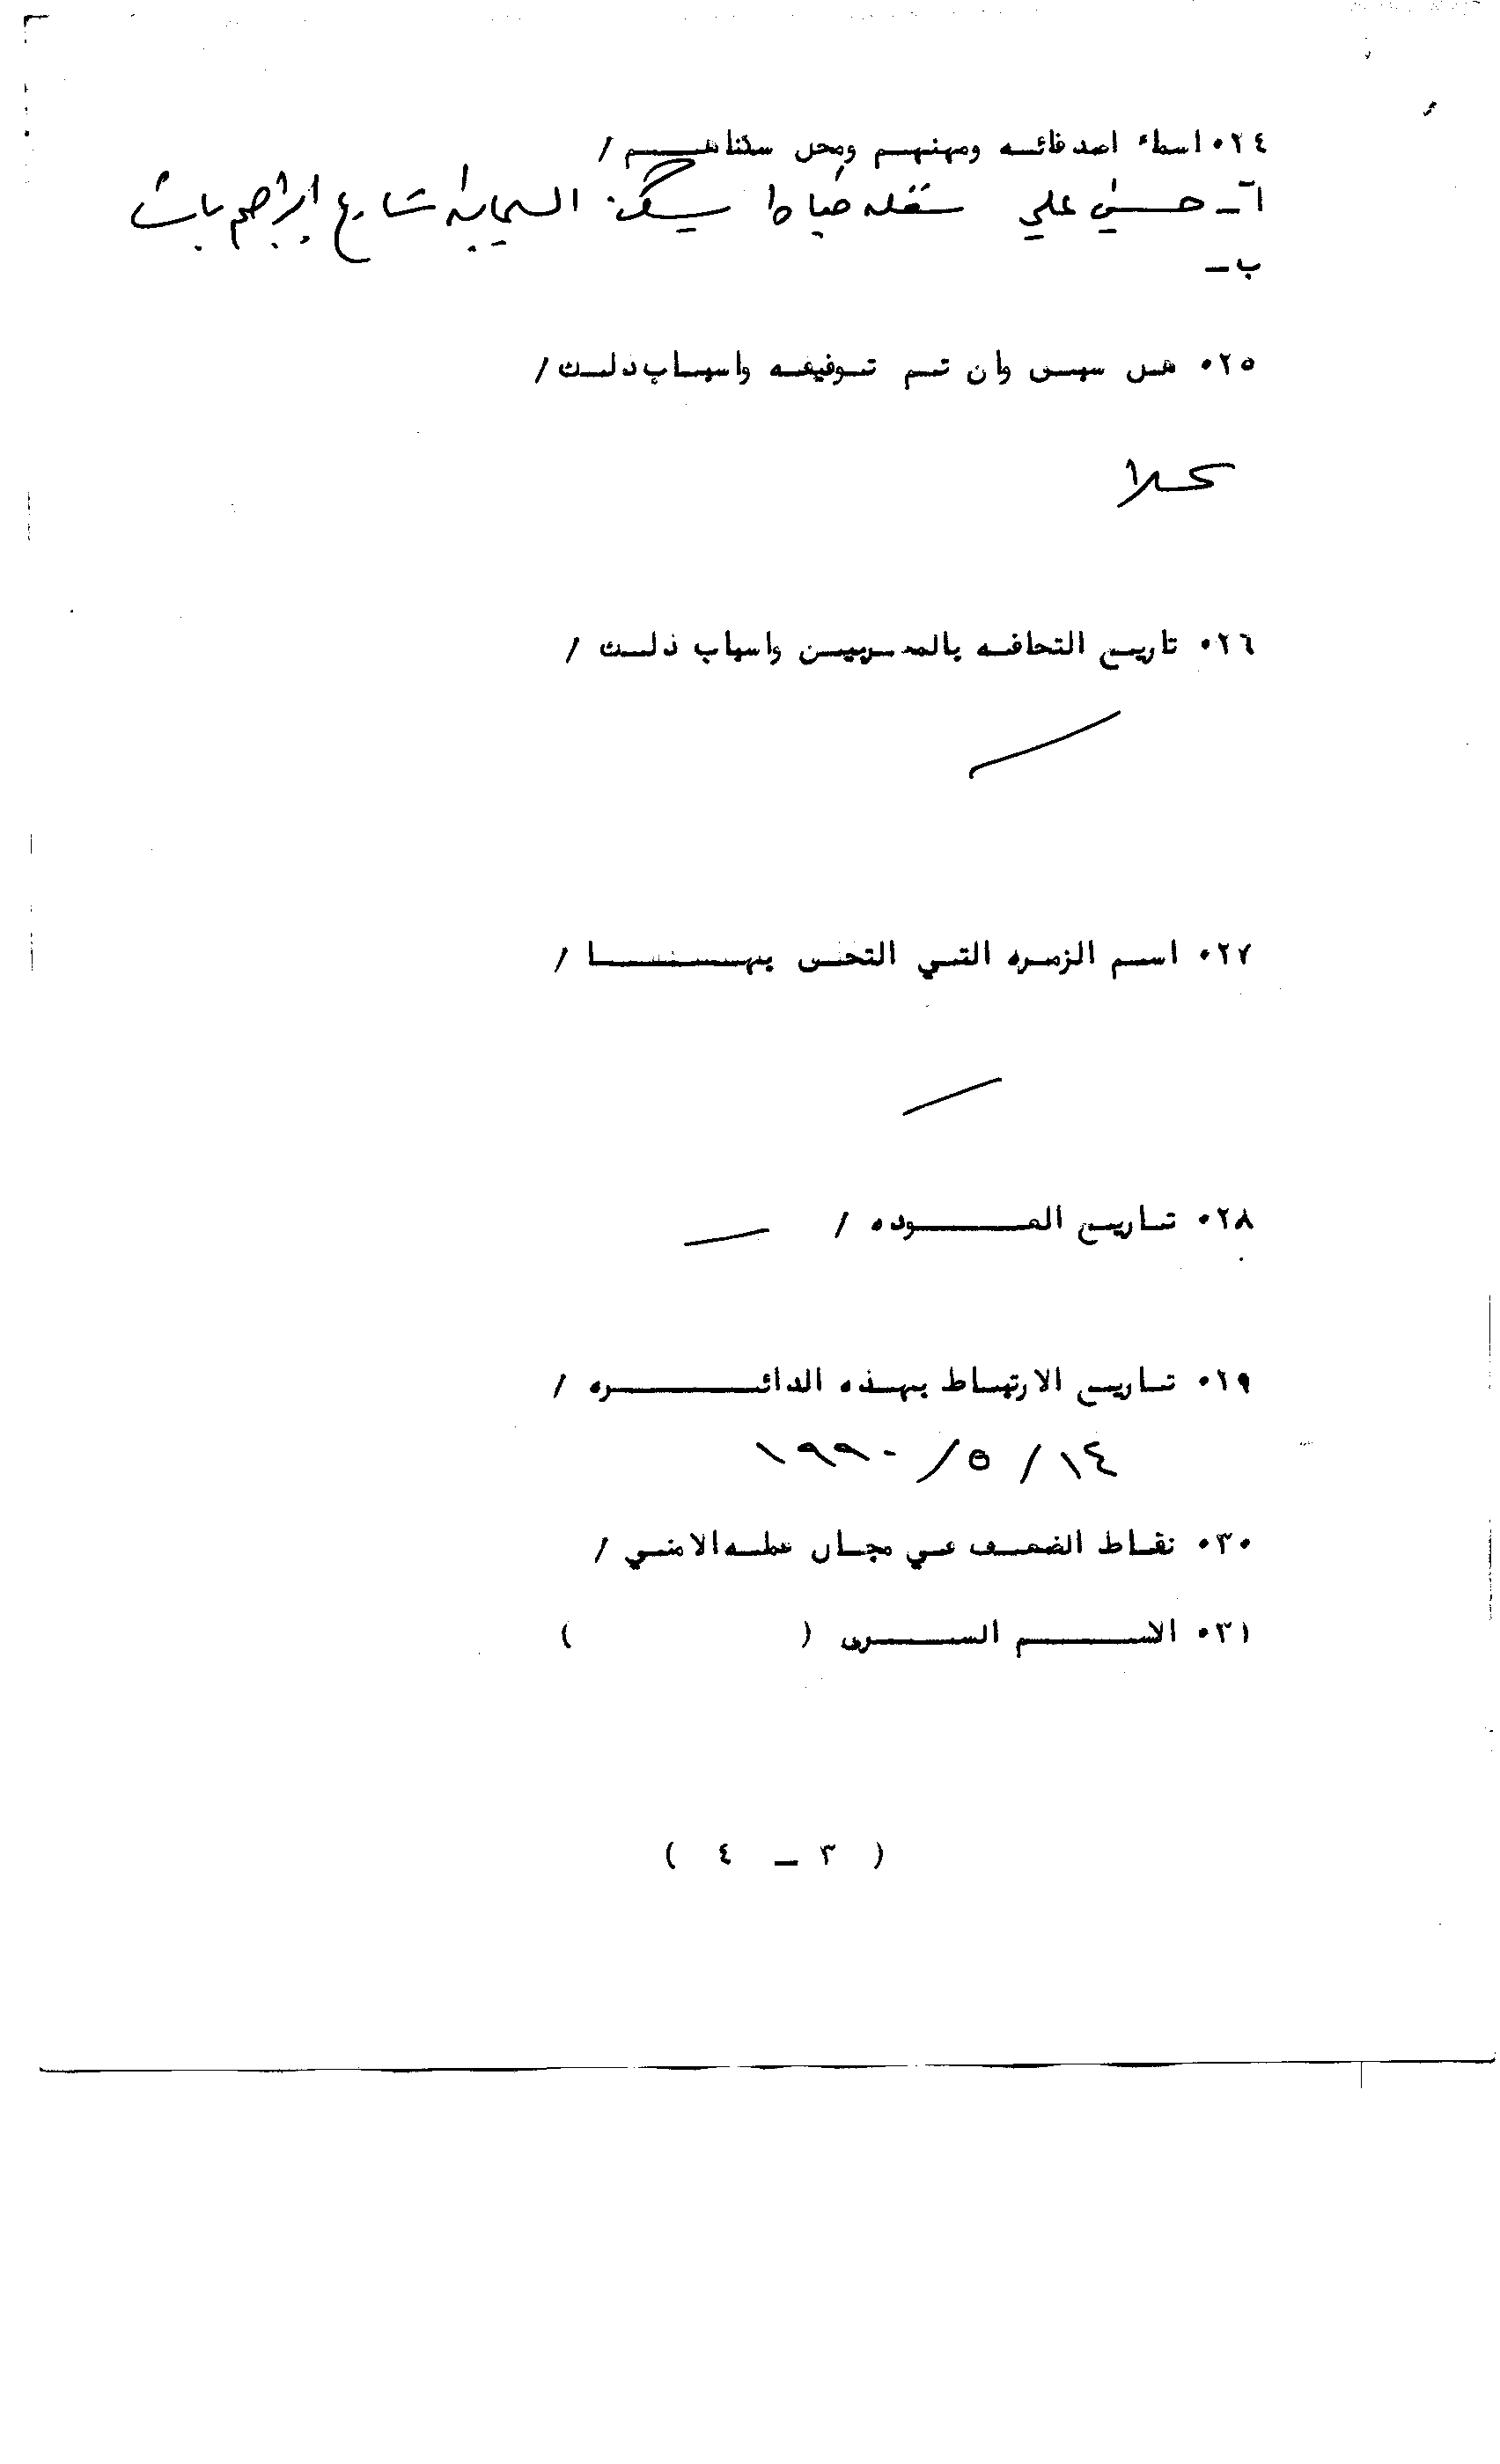 ٠٢٤ اسماء اصدقائه ومهنهم ومحل سكناهم /
آ ـ حسني علي شغله خياط يسكن السليمانية شارع ابراهيم باشا
ب ـ
٠٢٥ هل سبق وان تم توقيفه واسباب ذلك /
كلا
٠٢٦ تاريخ التحاقه بالمخربين واسباب ذلك /
٠٢٧ اسم الزمره التي التحق بها /
٠٢٨ تاريخ العوده /
٠٢٩ تاريخ الارتباط بهذه الدائره /
١٤ / ٥ / ١٩٩٠
٠٣٠ نقاط الضعف في مجال عمله الامني /
٠٣١ الاسم السرى ( )
( ٣ ـ ٤ )